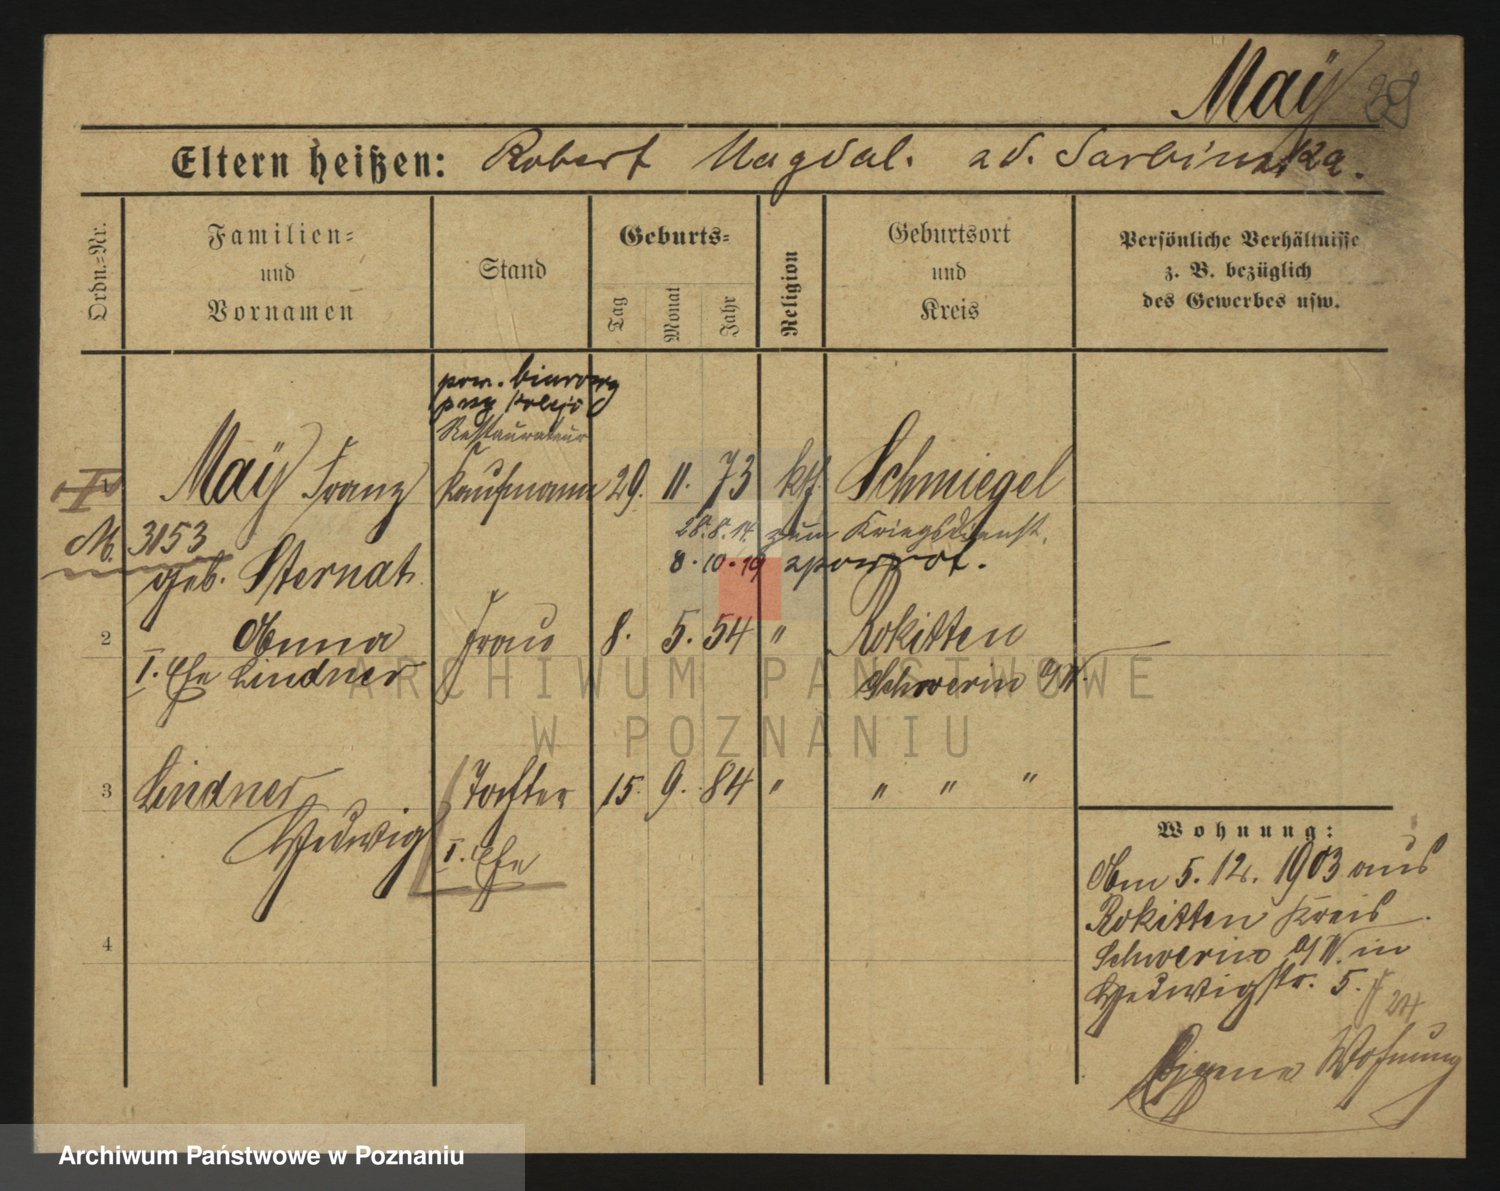 Maÿ
Eltern heißen: Robert Magdal. zd. Sarbinska.
Ordn.=Nr.
Familien=
und
Vornamen
Stand
Geburts=
Tag
Monat
Jahr
Religion
Geburtsort
und
Kreis
Persönliche Verhältnisse
z. B. bezüglich
des Gewerbes usw.
pow. biurowy
przy koleji
Restaurateur
Maÿ Franz Kaufmann 29. 11. 73 kth. Schmiegel
M. 3153
28. 8. 14. zum Kriegsdienst.
8. 10. 19 zpowrot.
geb. Sternat
2 Anna Frau 8. 5. 54 " Rokitten
I. Ehe Lindner Schwerin a/W.
3 Lindner Tochter 15. 9. 84 " " " "
Hedwig I. Ehe
4
Wohnung:
Am 5. 12. 1903 aus
Rokitten Kreis
Schwerin a/W. in
Hedwigstr. 5.
24
Eigene Wohnung
ARCHIWUM PAŃSTWOWE
W POZNANIU
Archiwum Państwowe w Poznaniu